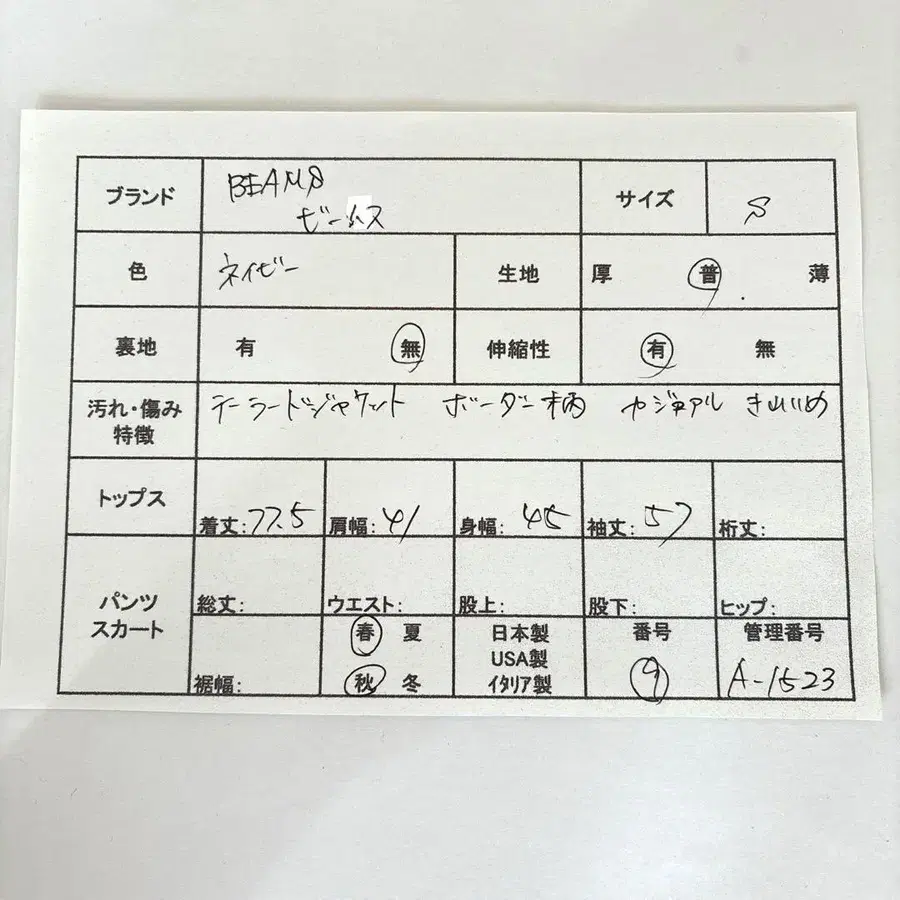 ブランド BEAMS サイズ S
ビームス
色 ネイビー 生地 厚 普 薄
裏地 有 無 伸縮性 有 無
汚れ・傷み テーラードジャケット ボーダー柄 カジュアル きれいめ
特徴
トップス 着丈:77.5 肩幅:41 身幅:45 袖丈:57 裄丈:
パンツ 総丈: ウエスト: 股上: 股下: ヒップ:
スカート 裾幅: 春 夏 日本製 番号 管理番号
USA製
秋 冬 イタリア製 9 A-1523